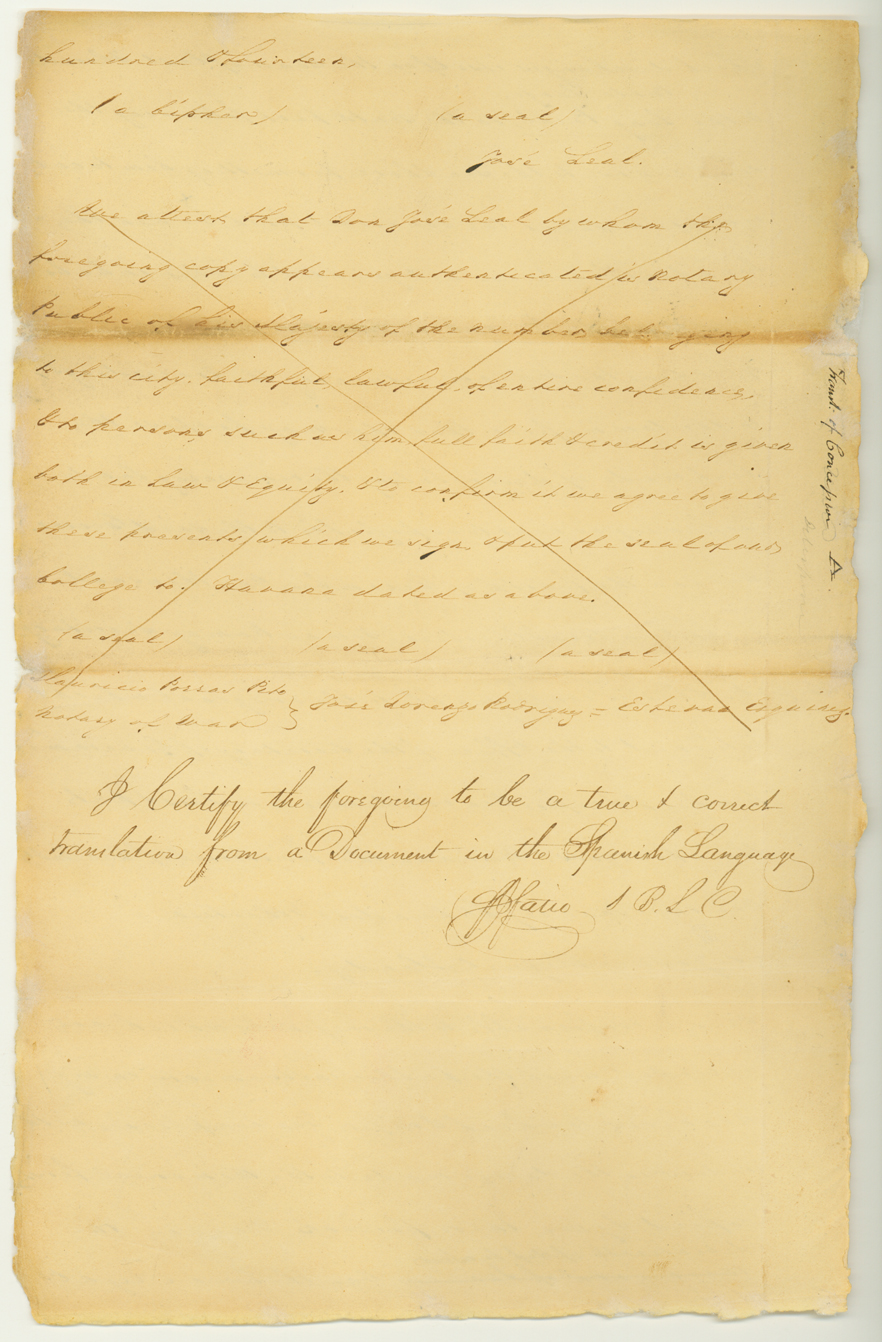 hundred & fourteen.
(a Cipher) (a seal)
José Leal.
We attest that Don José Leal by whom the
foregoing copy appears authenticated is Notary
Public of his Majesty of the number, bel ging
to this city, faithful, lawful, of entire confidence,
& to persons such as him full faith & credit is given
both in Law & Equity. & to confirm it we agree to give
these presents which we sign & put the seal of our
College to. Havana dated as above.
(a seal) (a seal) (a seal)
Mauricio Porras Pito
Notary of War } José Lorenzo Rodriguez = Estevan
I Certify the foregoing to be a true & correct
translation from a Document in the Spanish Language
B. L. C.
Transl. of Concepcion A.